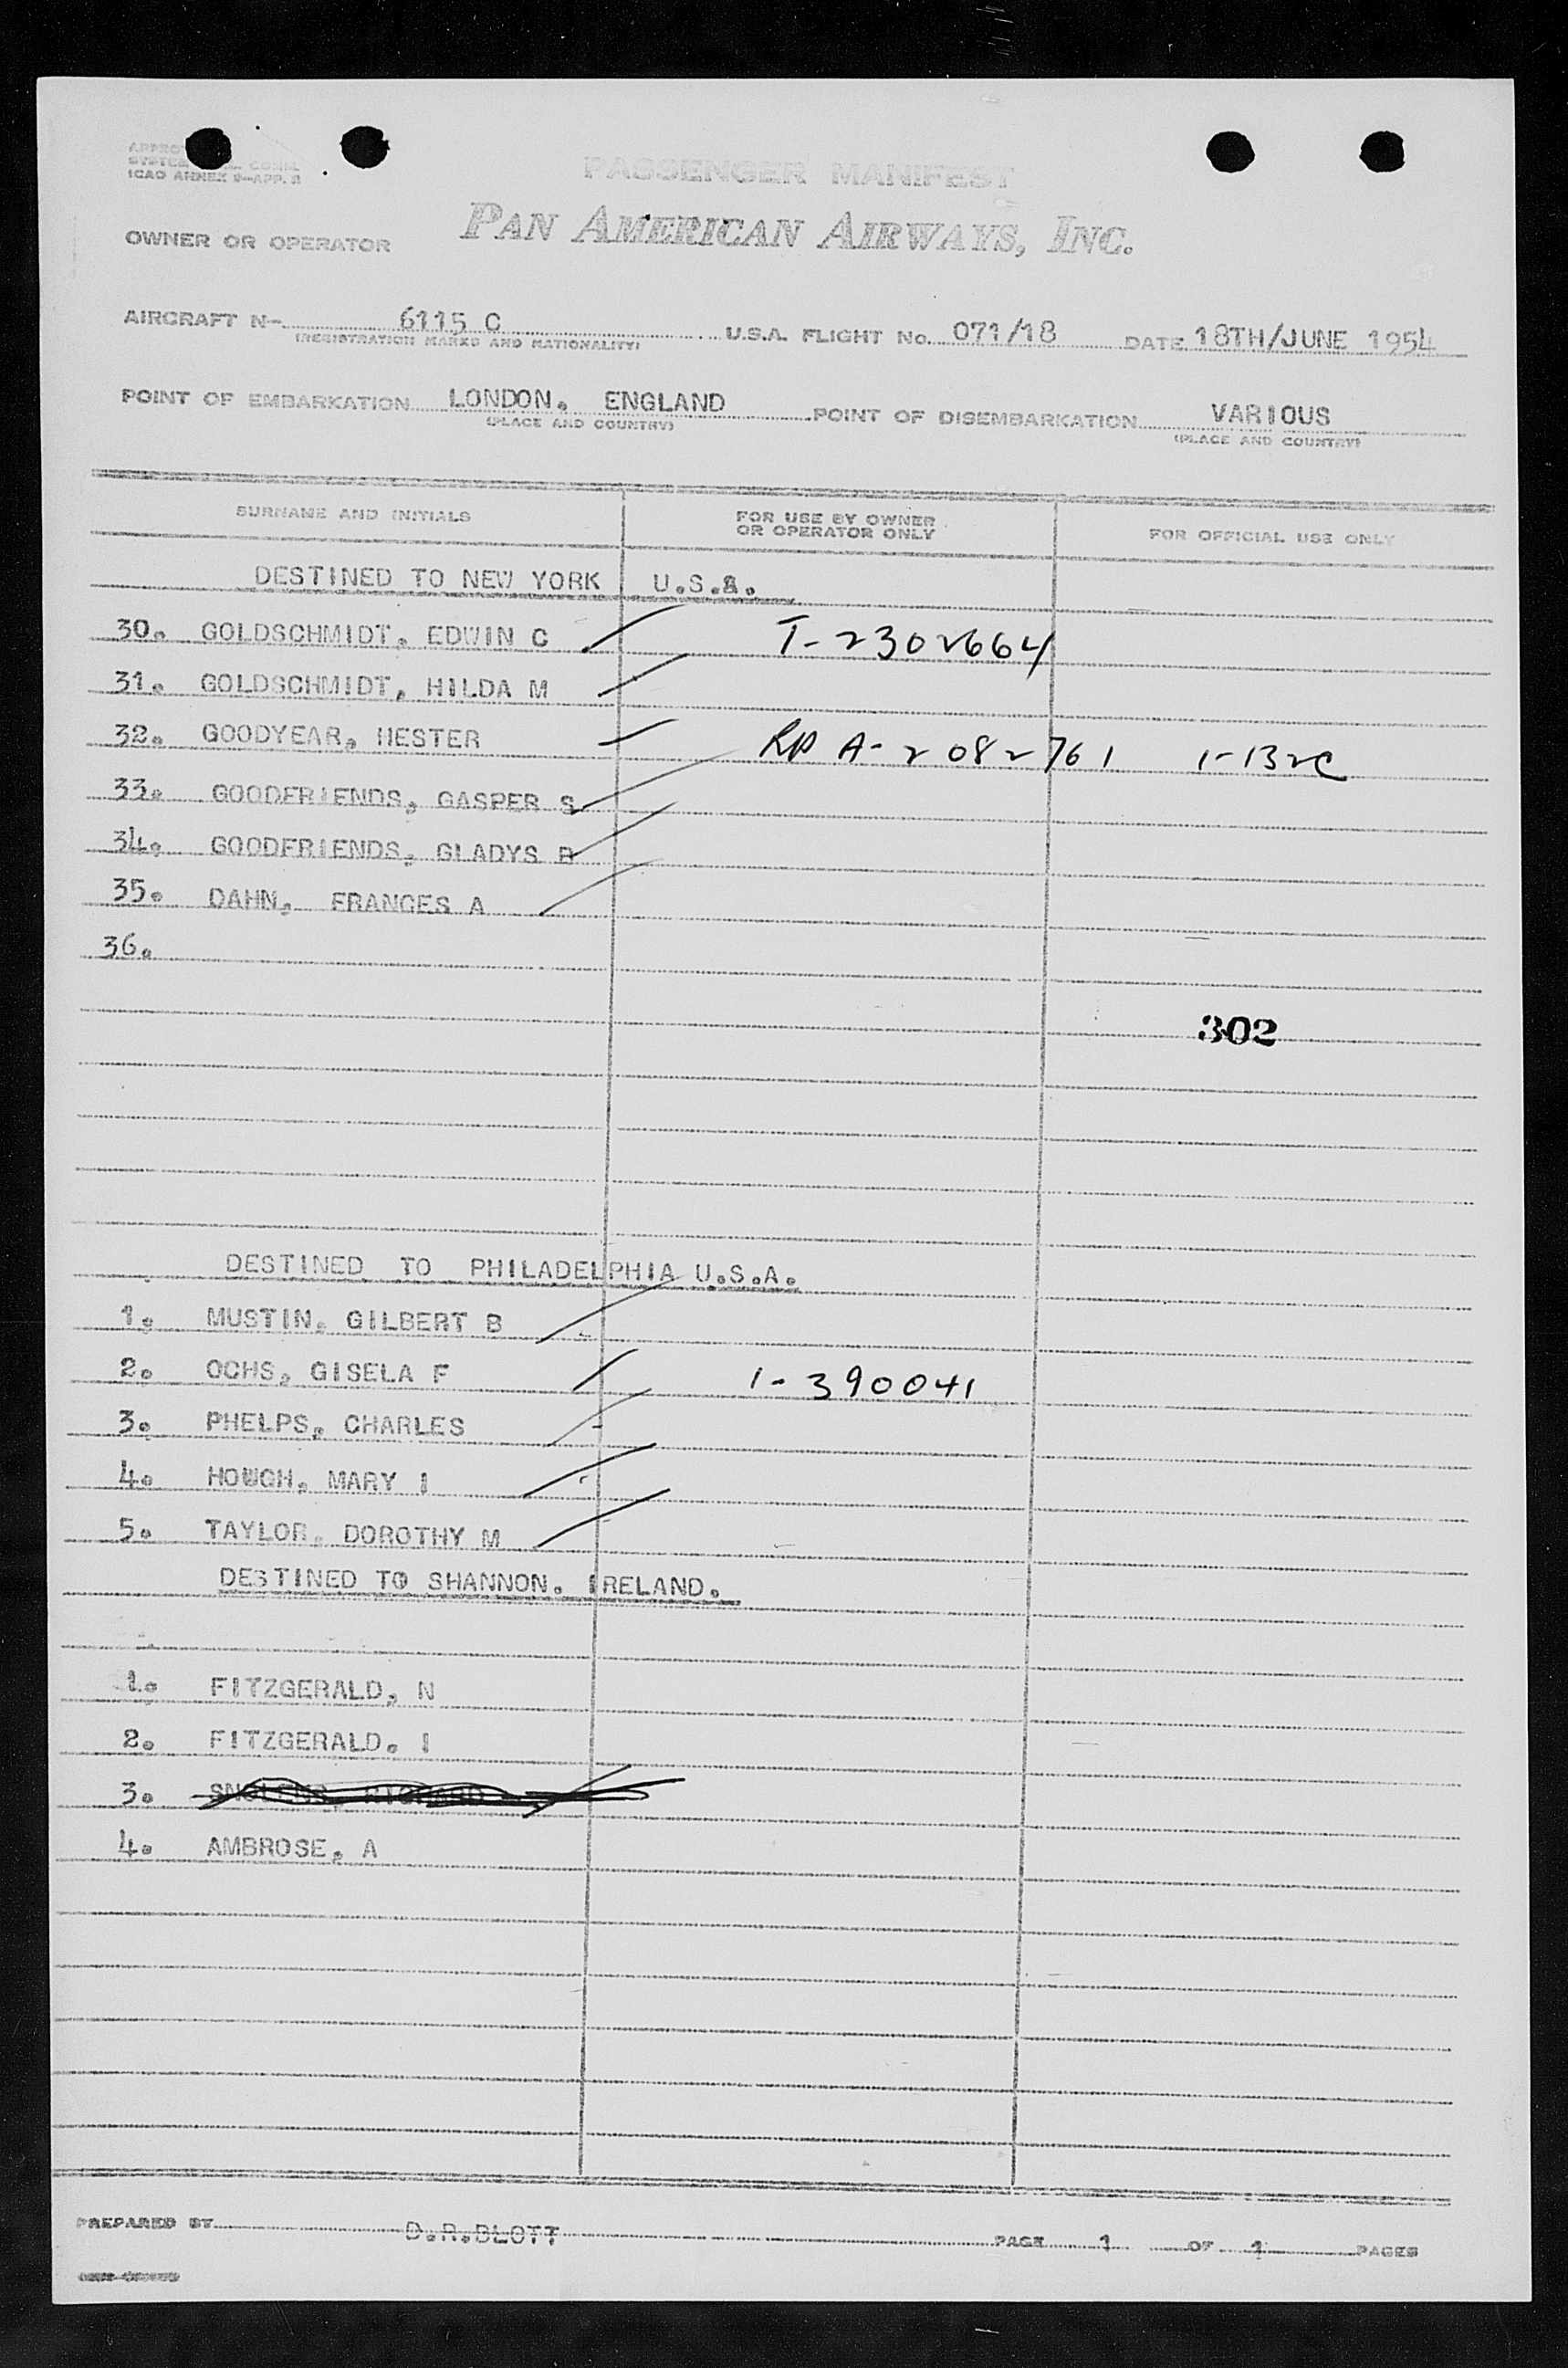 ICAO ANNEX 9-APP. 3
PASSENGER MANIFEST
OWNER OR OPERATOR PAN AMERICAN AIRWAYS, INC.
AIRCRAFT N- 6115 C U.S.A. FLIGHT NO. 071/18 DATE 18TH/JUNE 1954
(REGISTRATION MARKS AND NATIONALITY)
POINT OF EMBARKATION LONDON. ENGLAND POINT OF DISEMBARKATION VARIOUS
(PLACE AND COUNTRY) (PLACE AND COUNTRY)
SURNAME AND INITIALS FOR USE BY OWNER OR OPERATOR ONLY FOR OFFICIAL USE ONLY
DESTINED TO NEW YORK U.S.A.
30. GOLDSCHMIDT, EDWIN C T-2302664
31. GOLDSCHMIDT, HILDA M
32. GOODYEAR, HESTER RP A-2082761 1-132C
33. GOODFRIENDS, GASPER S
34. GOODFRIENDS, GLADYS B
35. DAHN, FRANCES A
36.
302
DESTINED TO PHILADELPHIA U.S.A.
1. MUSTIN, GILBERT B
2. OCHS, GISELA F 1-390041
3. PHELPS, CHARLES
4. HOUGH, MARY I
5. TAYLOR, DOROTHY M
DESTINED TO SHANNON. IRELAND.
1. FITZGERALD, N
2. FITZGERALD, I
3. RICHARD
4. AMBROSE, A
PREPARED BY D.R.BLOTT PAGE 1 OF 1 PAGES